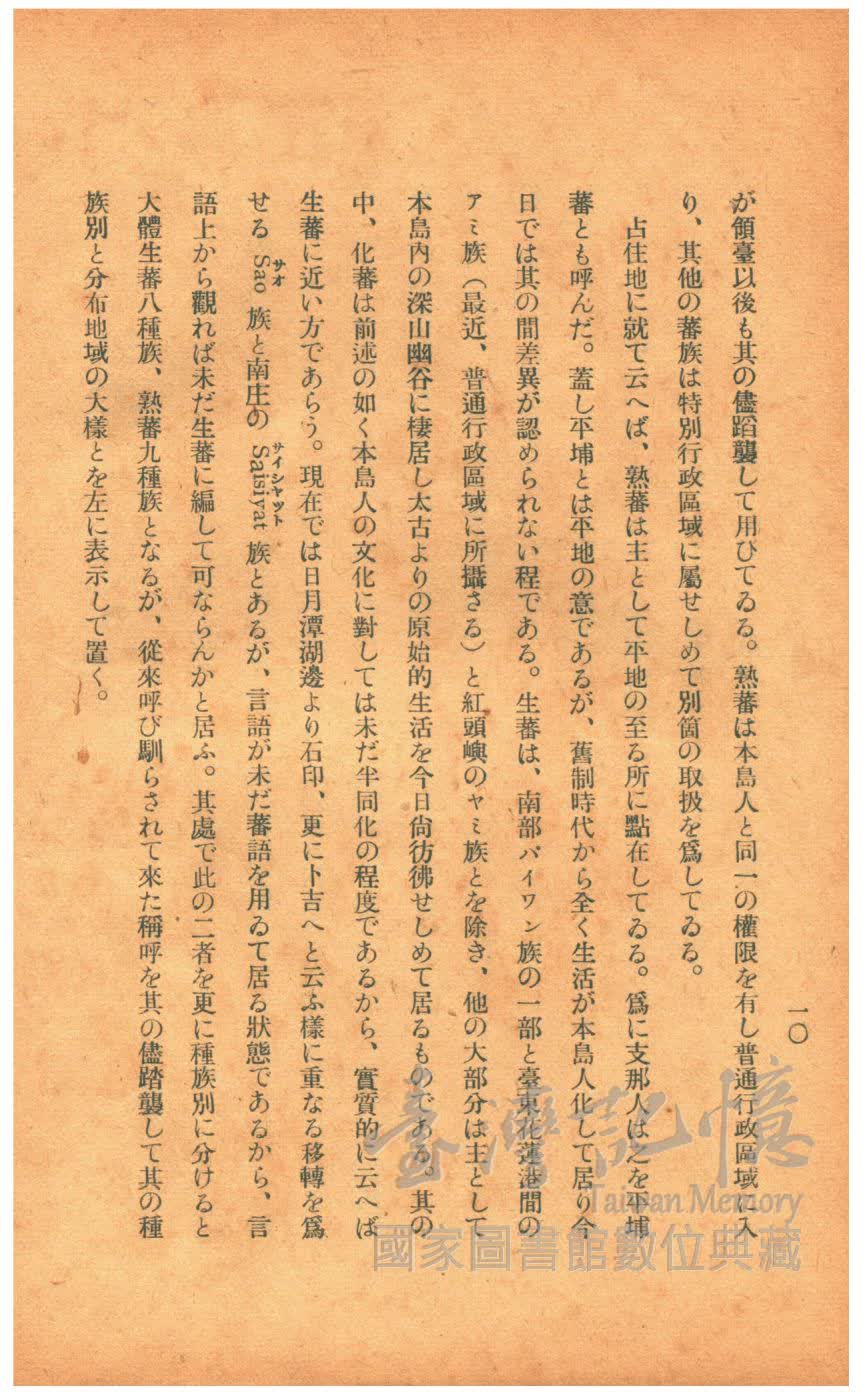 一〇
が領臺以後も其の儘蹈襲して用ひてゐる。熟蕃は本島人と同一の權限を有し普通行政區域に入
り、其他の蕃族は特別行政區域に屬せしめて別箇の取扱を爲してゐる。
占住地に就て云へば、熟蕃は主として平地の至る所に點在してゐる。爲に支那人は之を平埔
蕃とも呼んだ。蓋し平埔とは平地の意であるが、舊制時代から全く生活が本島人化して居り今
日では其の間差異が認められない程である。生蕃は、南部パイワン族の一部と臺東花蓮港間の
アミ族（最近、普通行政區域に所攝さる）と紅頭嶼のヤミ族とを除き、他の大部分は主として
本島內の深山幽谷に棲居し太古よりの原始的生活を今日尙彷彿せしめて居るものである。其の
中、化蕃は前述の如く本島人の文化に對しては未だ半同化の程度であるから、實質的に云へば
生蕃に近い方であらう。現在では日月潭湖邊より石印、更に卜吉へと云ふ樣に重なる移轉を爲
せる Sao 族と南庄の Saisiyat 族とあるが、言語が未だ蕃語を用ゐて居る狀態であるから、言
サオ サイシャット
語上から觀れば未だ生蕃に編して可ならんかと居ふ。其處で此の二者を更に種族別に分けると
大體生蕃八種族、熟蕃九種族となるが、從來呼び馴らされて來た稱呼を其の儘踏襲して其の種
族別と分布地域の大樣とを左に表示して置く。
臺灣記憶
Taiwan Memory
國家圖書館數位典藏